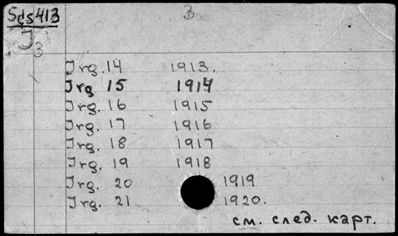 Sds413 3
J
3
Jrg. 14 1913.
Jrg 15 1914
Jrg. 16 1915
Jrg. 17 1916
Jrg. 18 1917
Jrg. 19 1918
Jrg. 20 1919
Jrg. 21 1920.
см. след. карт.